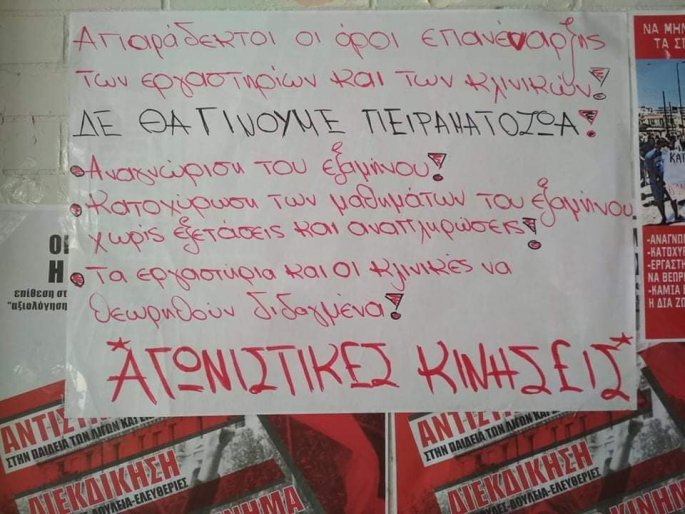 Απαράδεκτοι οι όροι επανέναρξης
των εργαστηρίων και των κλινικών!
ΔΕ ΘΑ ΓΙΝΟΥΜΕ ΠΕΙΡΑΜΑΤΟΖΩΑ!
• Αναγνώριση του εξαμήνου!
• Κατοχύρωση των μαθημάτων του εξαμήνου
χωρίς εξετάσεις και αναπληρώσεις!
• Τα εργαστήρια και οι κλινικές να
θεωρηθούν διδαγμένα!
*ΑΓΩΝΙΣΤΙΚΕΣ ΚΙΝΗΣΕΙΣ*
ΝΑ ΜΗΝ
ΤΑ ΣΠ
-ΑΝΑΓΝΩ
-ΚΑΤΟΧΥΡ
-ΕΡΓΑΣΤΗ
ΝΑ ΘΕΩΡΗ
-ΚΑΜΙΑ
Η ΔΙΑ ΖΩ
ΟΙ
Η
επίθεση στ
"αξιολόγηση
ΑΝΤΙΣΤ
ΣΤΗΝ ΠΑΙΔΕΙΑ ΤΩΝ ΛΙΓΩΝ ΚΑΙ
ΔΙΕΚΔΙΚΗΣΗ
ΔΟΥΛΕΙΑ-ΕΛΕΥΘΕΡΙΕΣ
ΚΙΝΗΜΑ
ΑΝΤΙΣΤ
ΣΤΗΝ ΠΑΙΔΕΙΑ ΤΩΝ ΛΙΓΩΝ ΚΑΙ
ΔΙΕΚΔΙΚΗΣΗ
ΔΟΥΛΕΙΑ-ΕΛΕΥΘΕΡΙΕΣ
ΚΙΝΗΜΑ